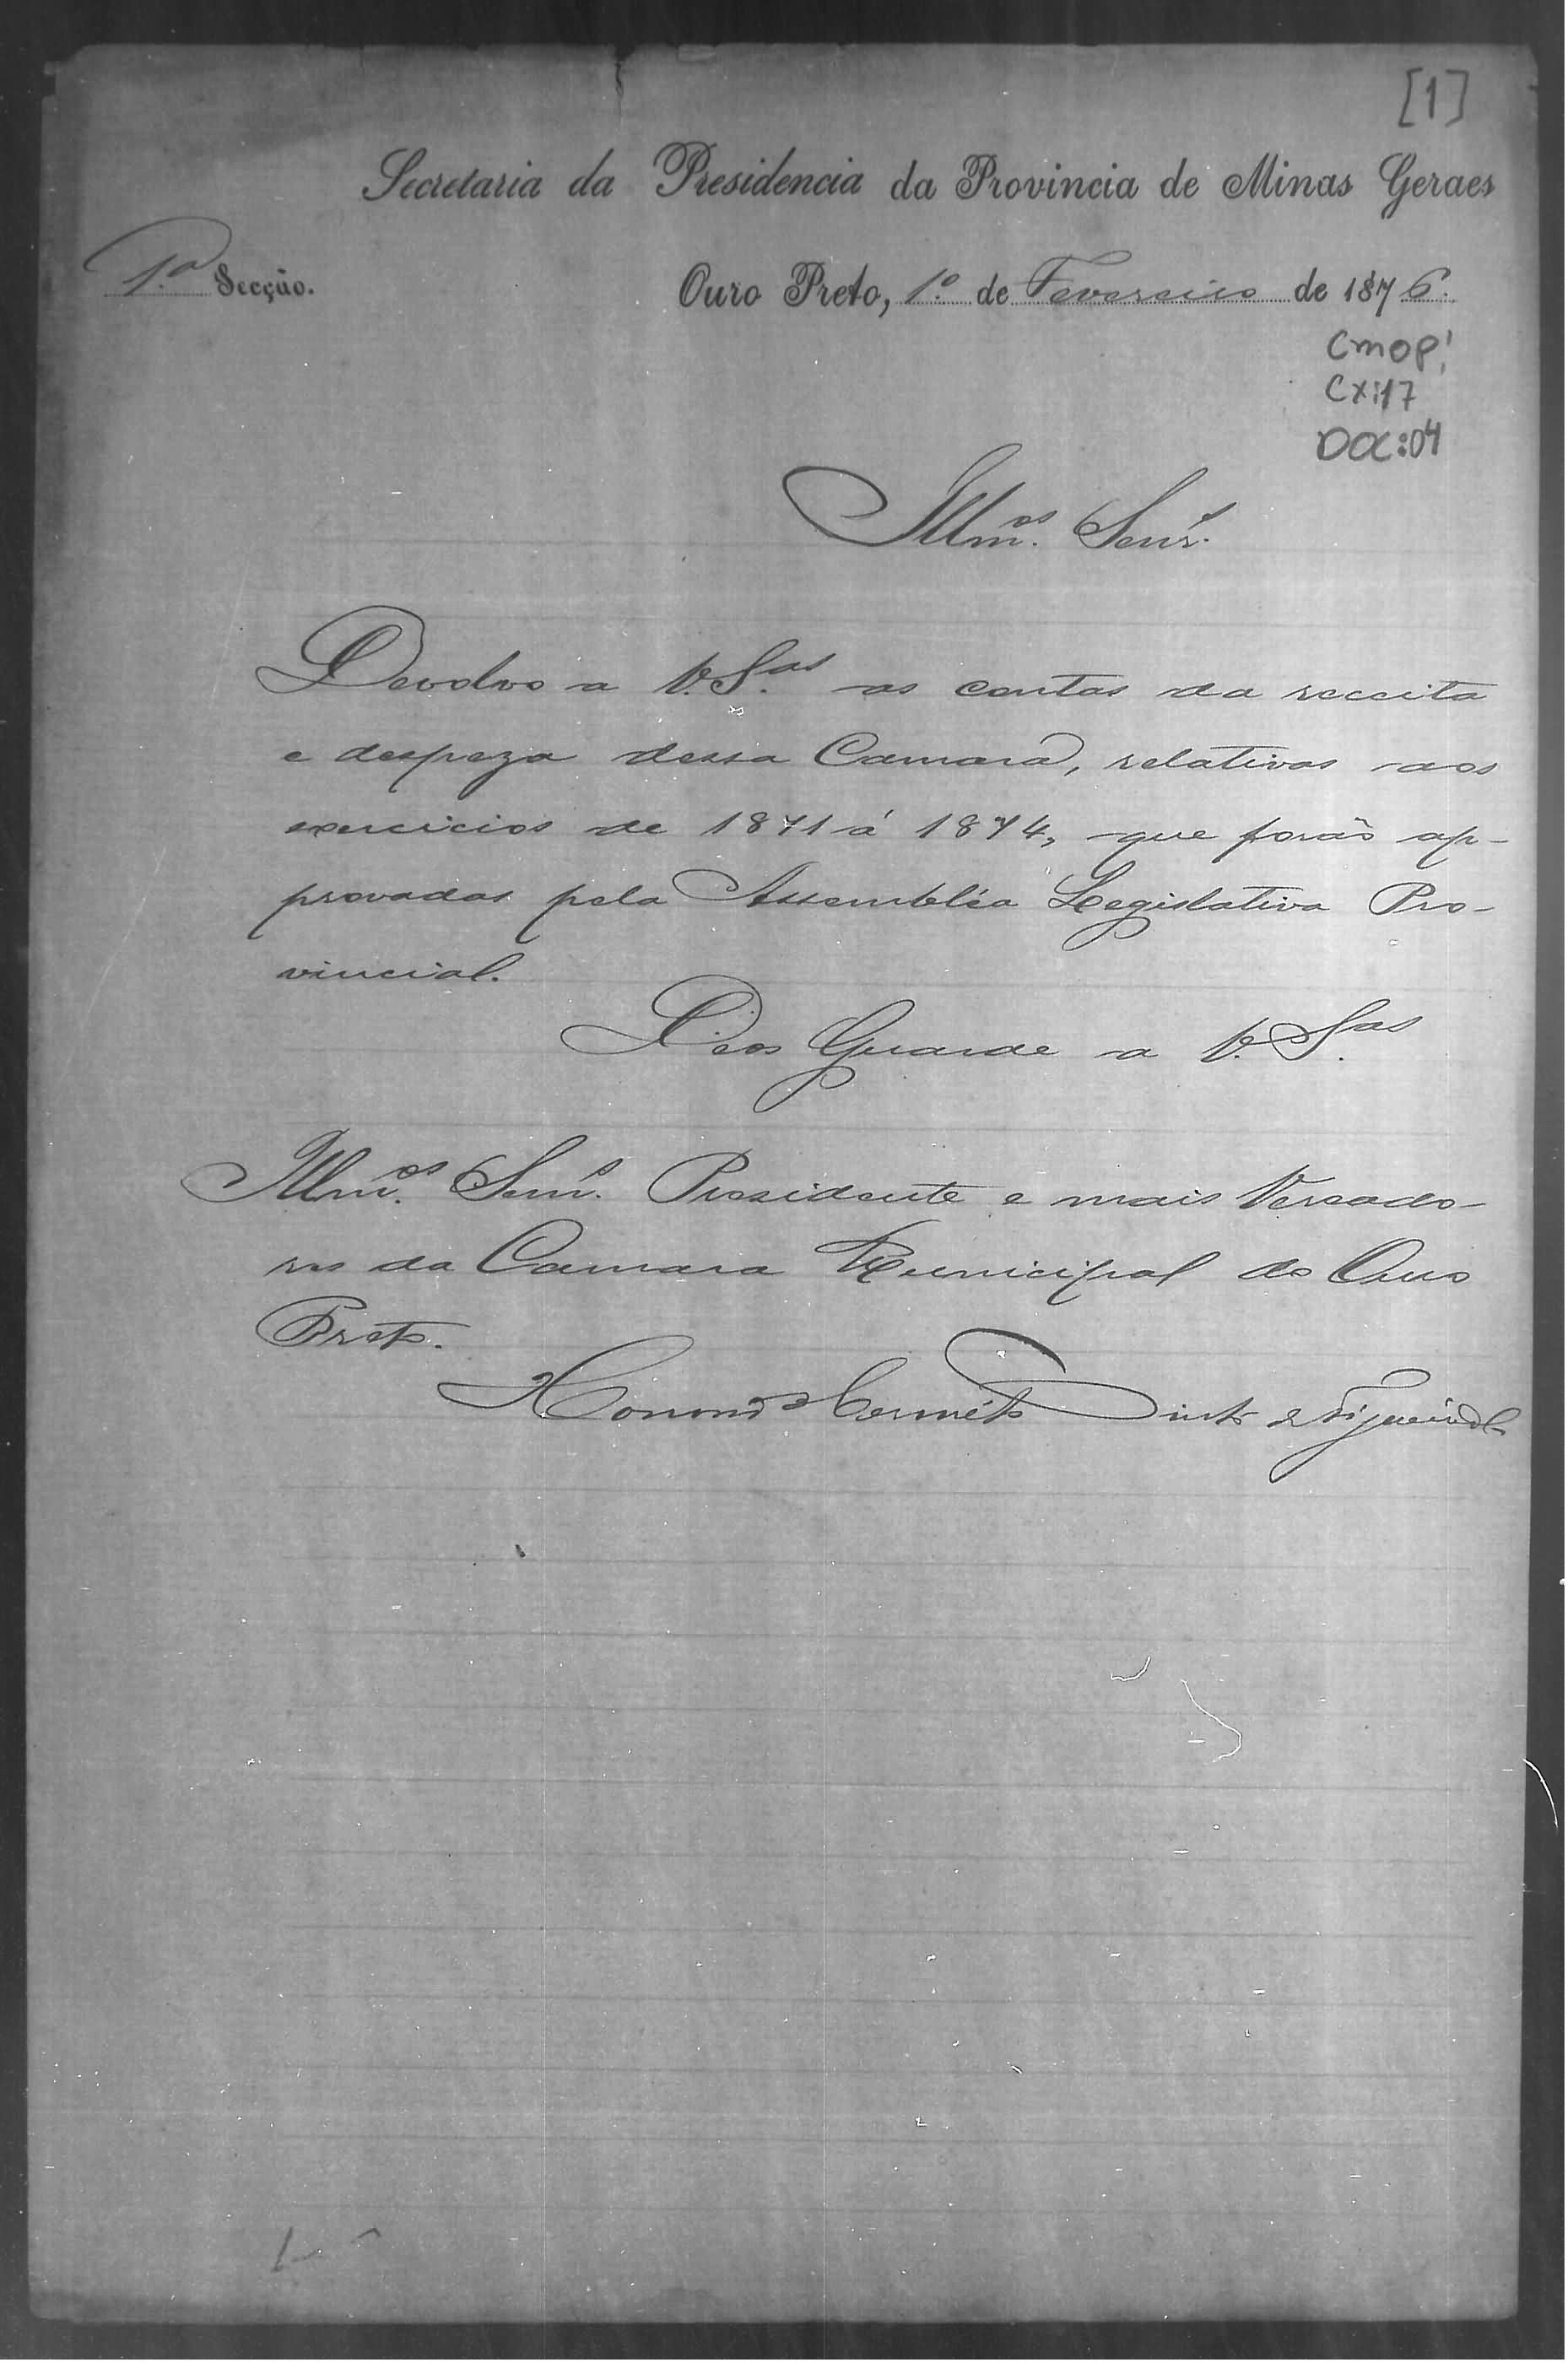 [1]
Secretaria da Presidencia da Provincia de Minas Geraes
1.ª Secção.
Ouro Preto, 1.º de Fevereiro de 1876.
CMOP
CX:17
DOC:04
Illm.os Senr.s
Devolvo a V. S.as as contas da receita
e despeza dessa Camara, relativas aos
exercicios de 1871 á 1874, que forão ap-
provadas pela Assembléa Legislativa Pro-
vincial.
Deos Guarde a V. S.as
Illm.os Senr.s Presidente e mais Vereado-
res da Camara Municipal do Ouro
Preto.
Honorio Hermeto